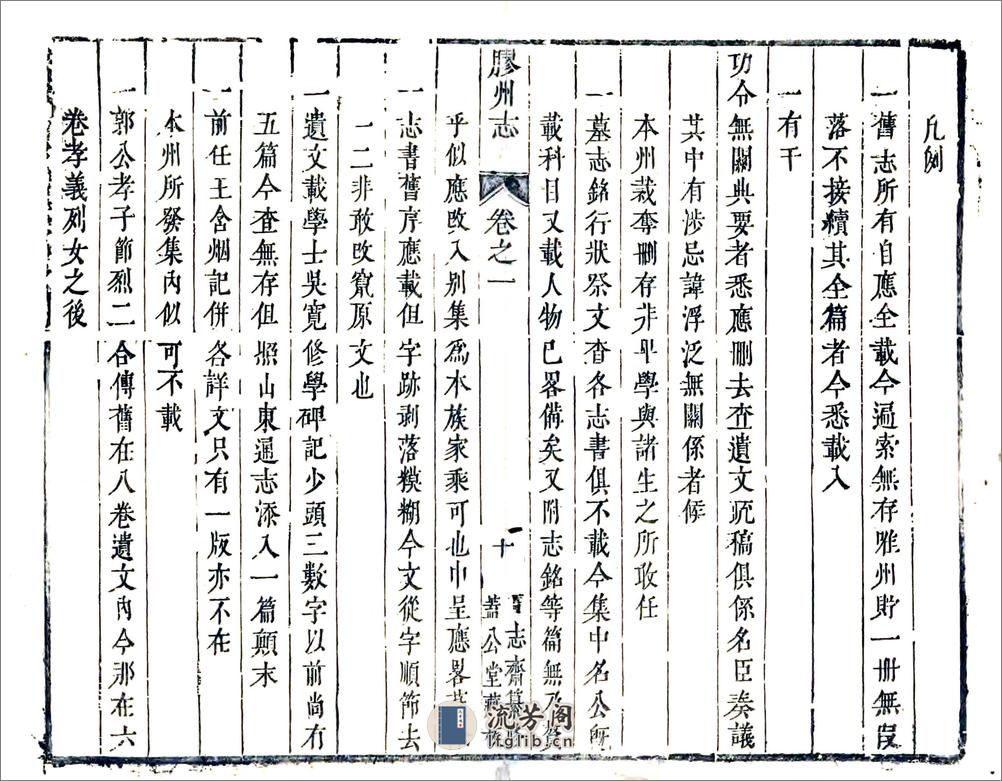 凡例
一舊志所有自應全載今遍索無存唯州貯一冊無叚
落不接續其全篇者今悉載入
一有干
功令無關典要者悉應刪去查遺文疏稿俱係名臣奏議
其中有涉忌諱浮泛無關係者候
本州裁奪刪存非卑學與諸生之所敢任
一墓志銘行狀祭文查各志書俱不載今集中名公所
載科目又載人物已畧備矣又附志銘等篇無乃贅
乎似應改入別集爲本族家乘可也申呈應畧
膠州志 卷之一 十 志齋 蓋公堂藏
一志書舊序應載但字跡剥落糢糊今文從字順節去
一二非敢改竄原文也
一遺文載學士吳寬修學碑記少頭三數字以前尚有
五篇今查無存但照山東通志添入一篇顛末
一前任王舍烟記併各詳文只有一版亦不在
本州所發集內似可不載
一郭公孝子節烈二合傳舊在八卷遺文內今那在六
卷孝義列女之後
流芳阁
lfglib.cn